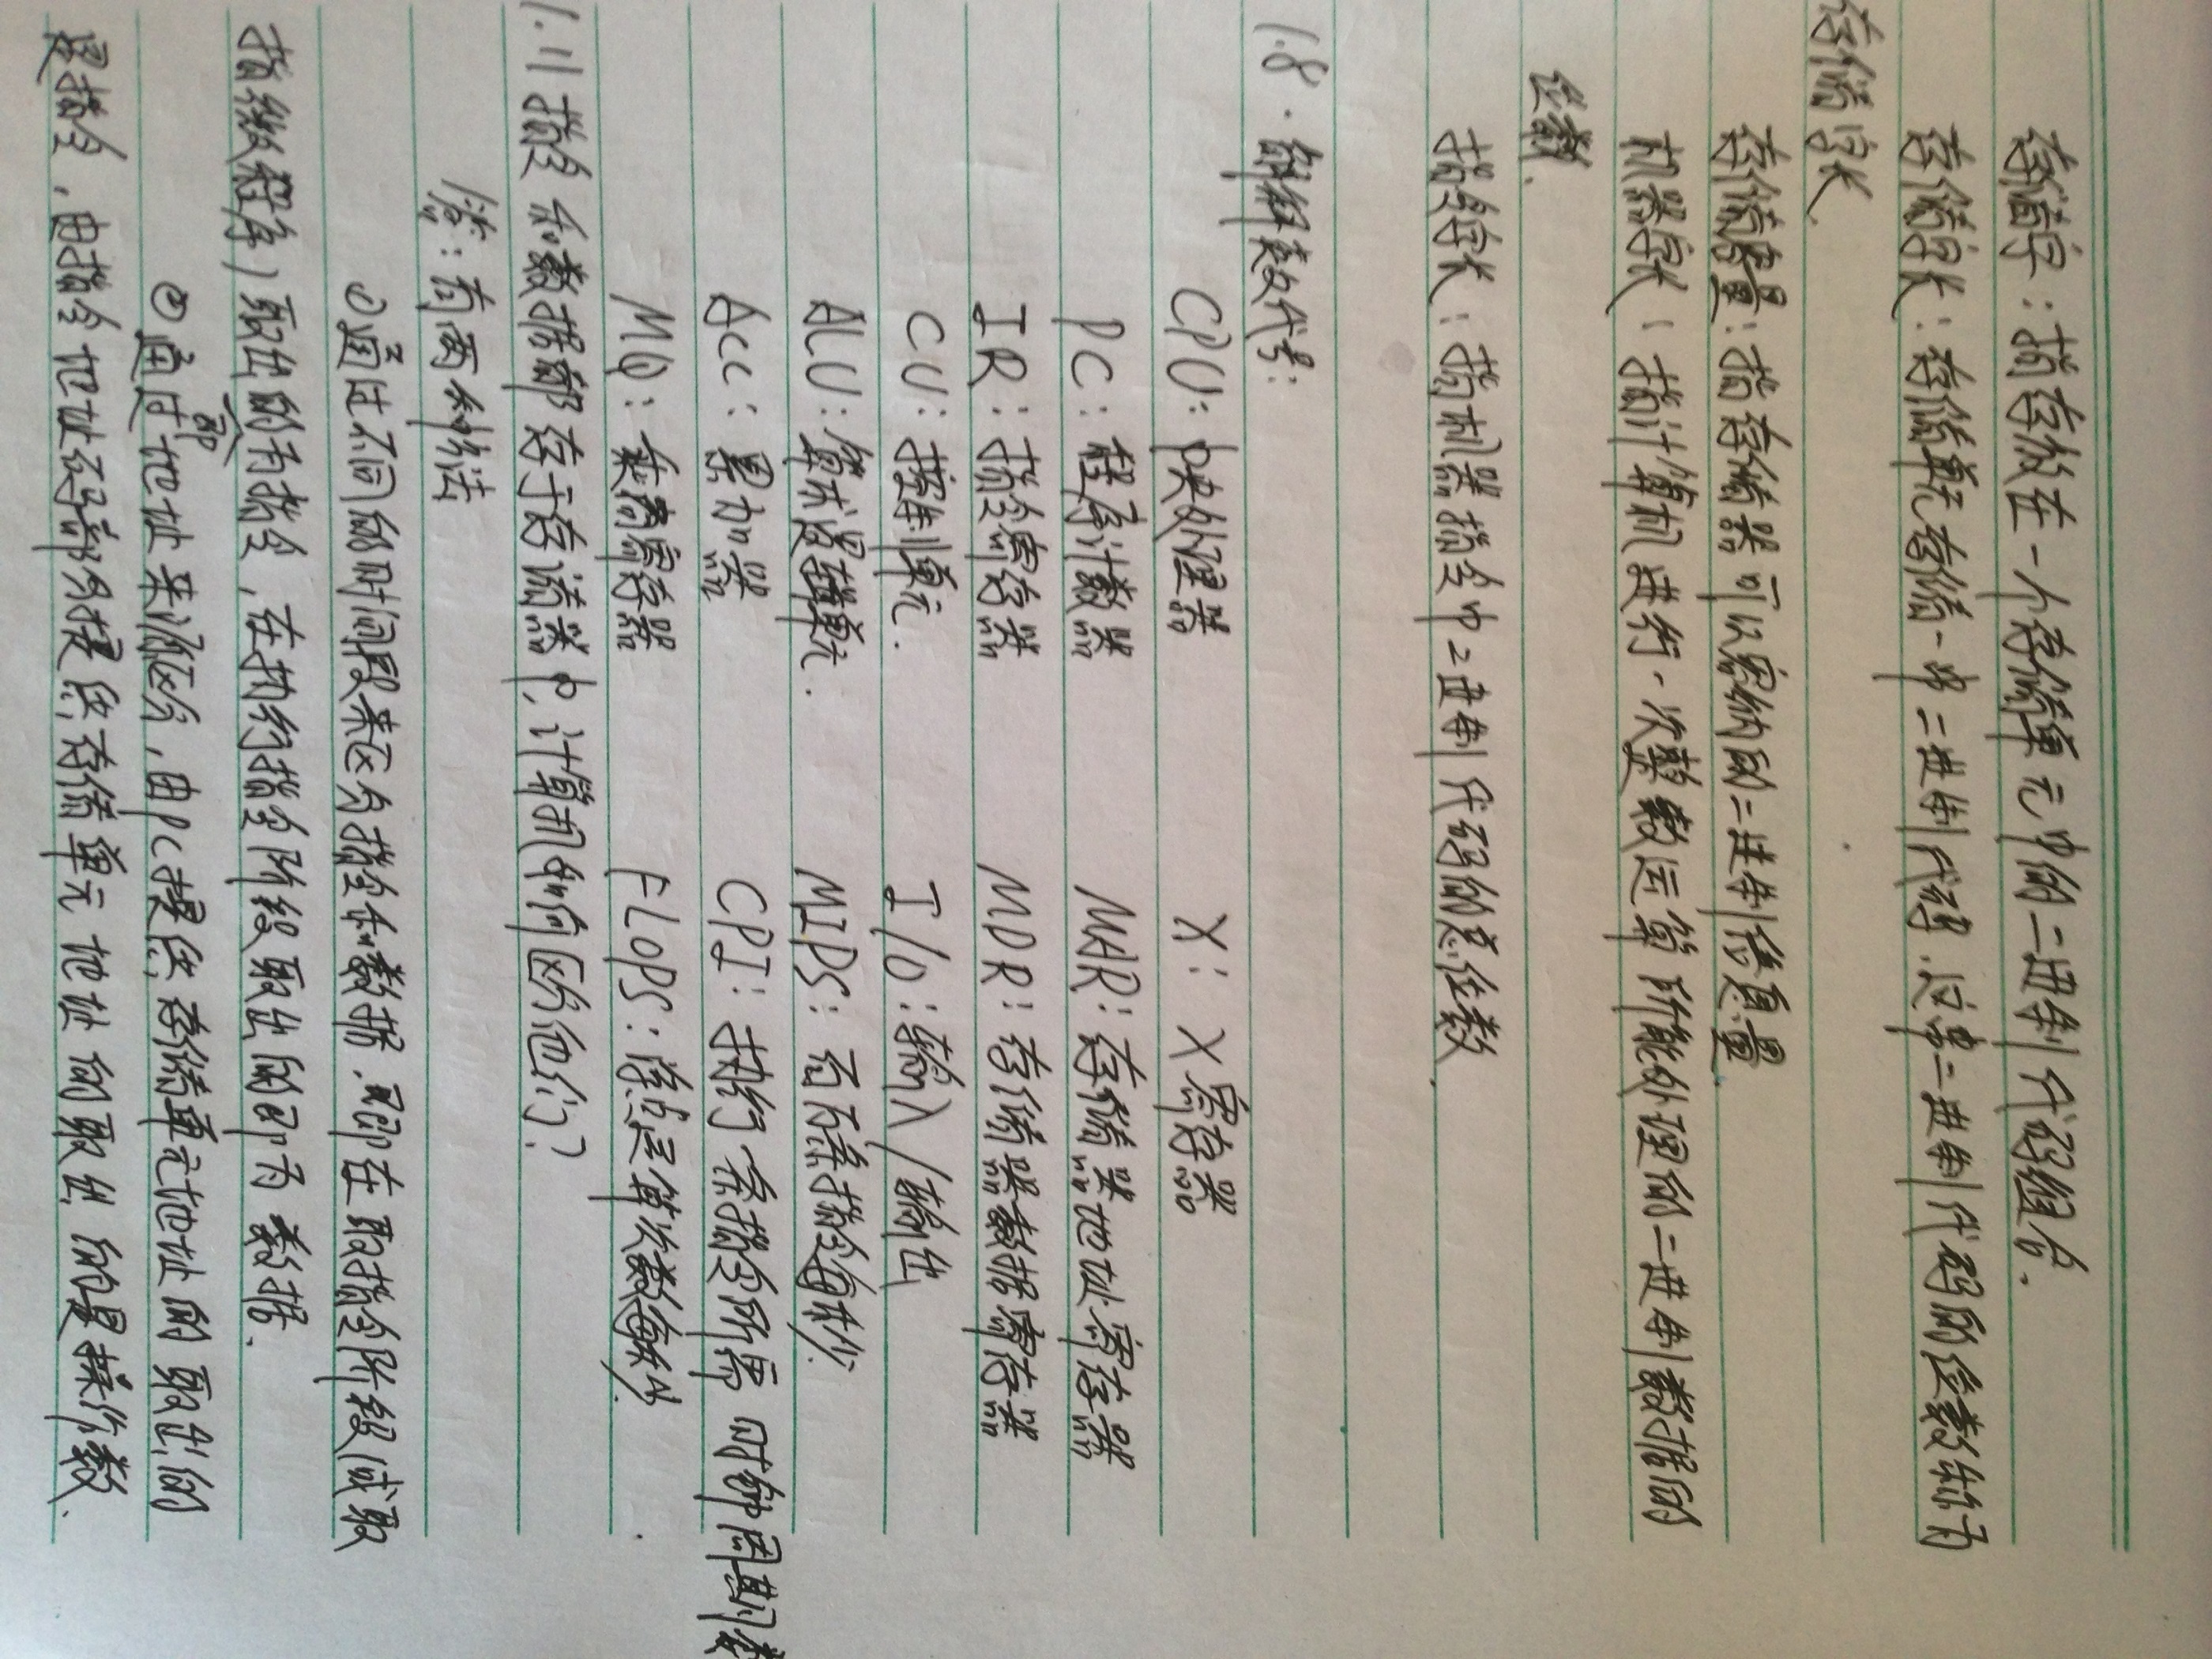 存储字：指存放在一个存储单元中的二进制代码组合.
存储字长：存储单元存储一串二进制代码.这串二进制代码的位数称为
存储字长.
存储容量：指存储器可以容纳的二进制信息量.
机器字长：指计算机进行一次整数运算所能处理的二进制数据的
位数.
指令字长：指机器指令中二进制代码的总位数.
1.8.解释英文代号：
CPU：中央处理器 X：X寄存器
PC：程序计数器 MAR：存储器地址寄存器
IR：指令寄存器 MDR：存储器数据寄存器
CU：控制单元. I/O：输入/输出
ALU：算术逻辑单元. MIPS：百万条指令每秒.
ACC：累加器 CPI：执行一条指令所需时钟周期数
MQ：乘商寄存器 FLOPS：浮点运算次数每秒.
1.11指令和数据都存于存储器中,计算机如何区分他们?
解：有两种办法
①通过不同的时间段来区分指令和数据.即在取指令阶段(或取
指微程序)取出的为指令,在执行指令阶段取出的即为数据.
②通过地址来源区分,由PC提供存储单元地址的取出的
是指令,由指令地址码部分提供存储单元地址的取出的是操作数.